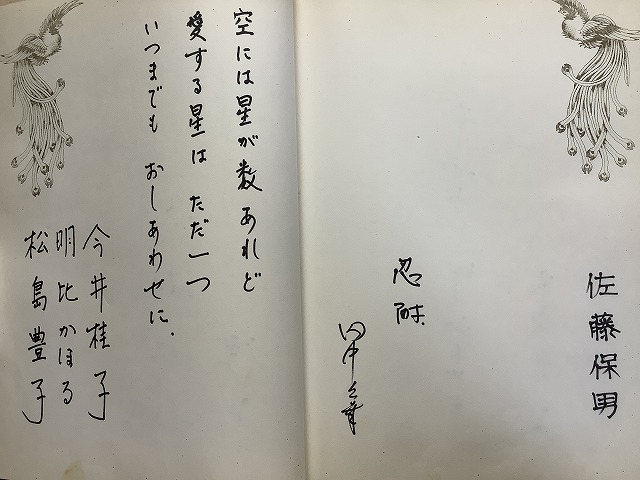 佐藤保男
忍耐
田中
空には星が数あれど
愛する星はただ一つ
いつまでもおしあわせに.
今井桂子
明比かほる
松島豊子